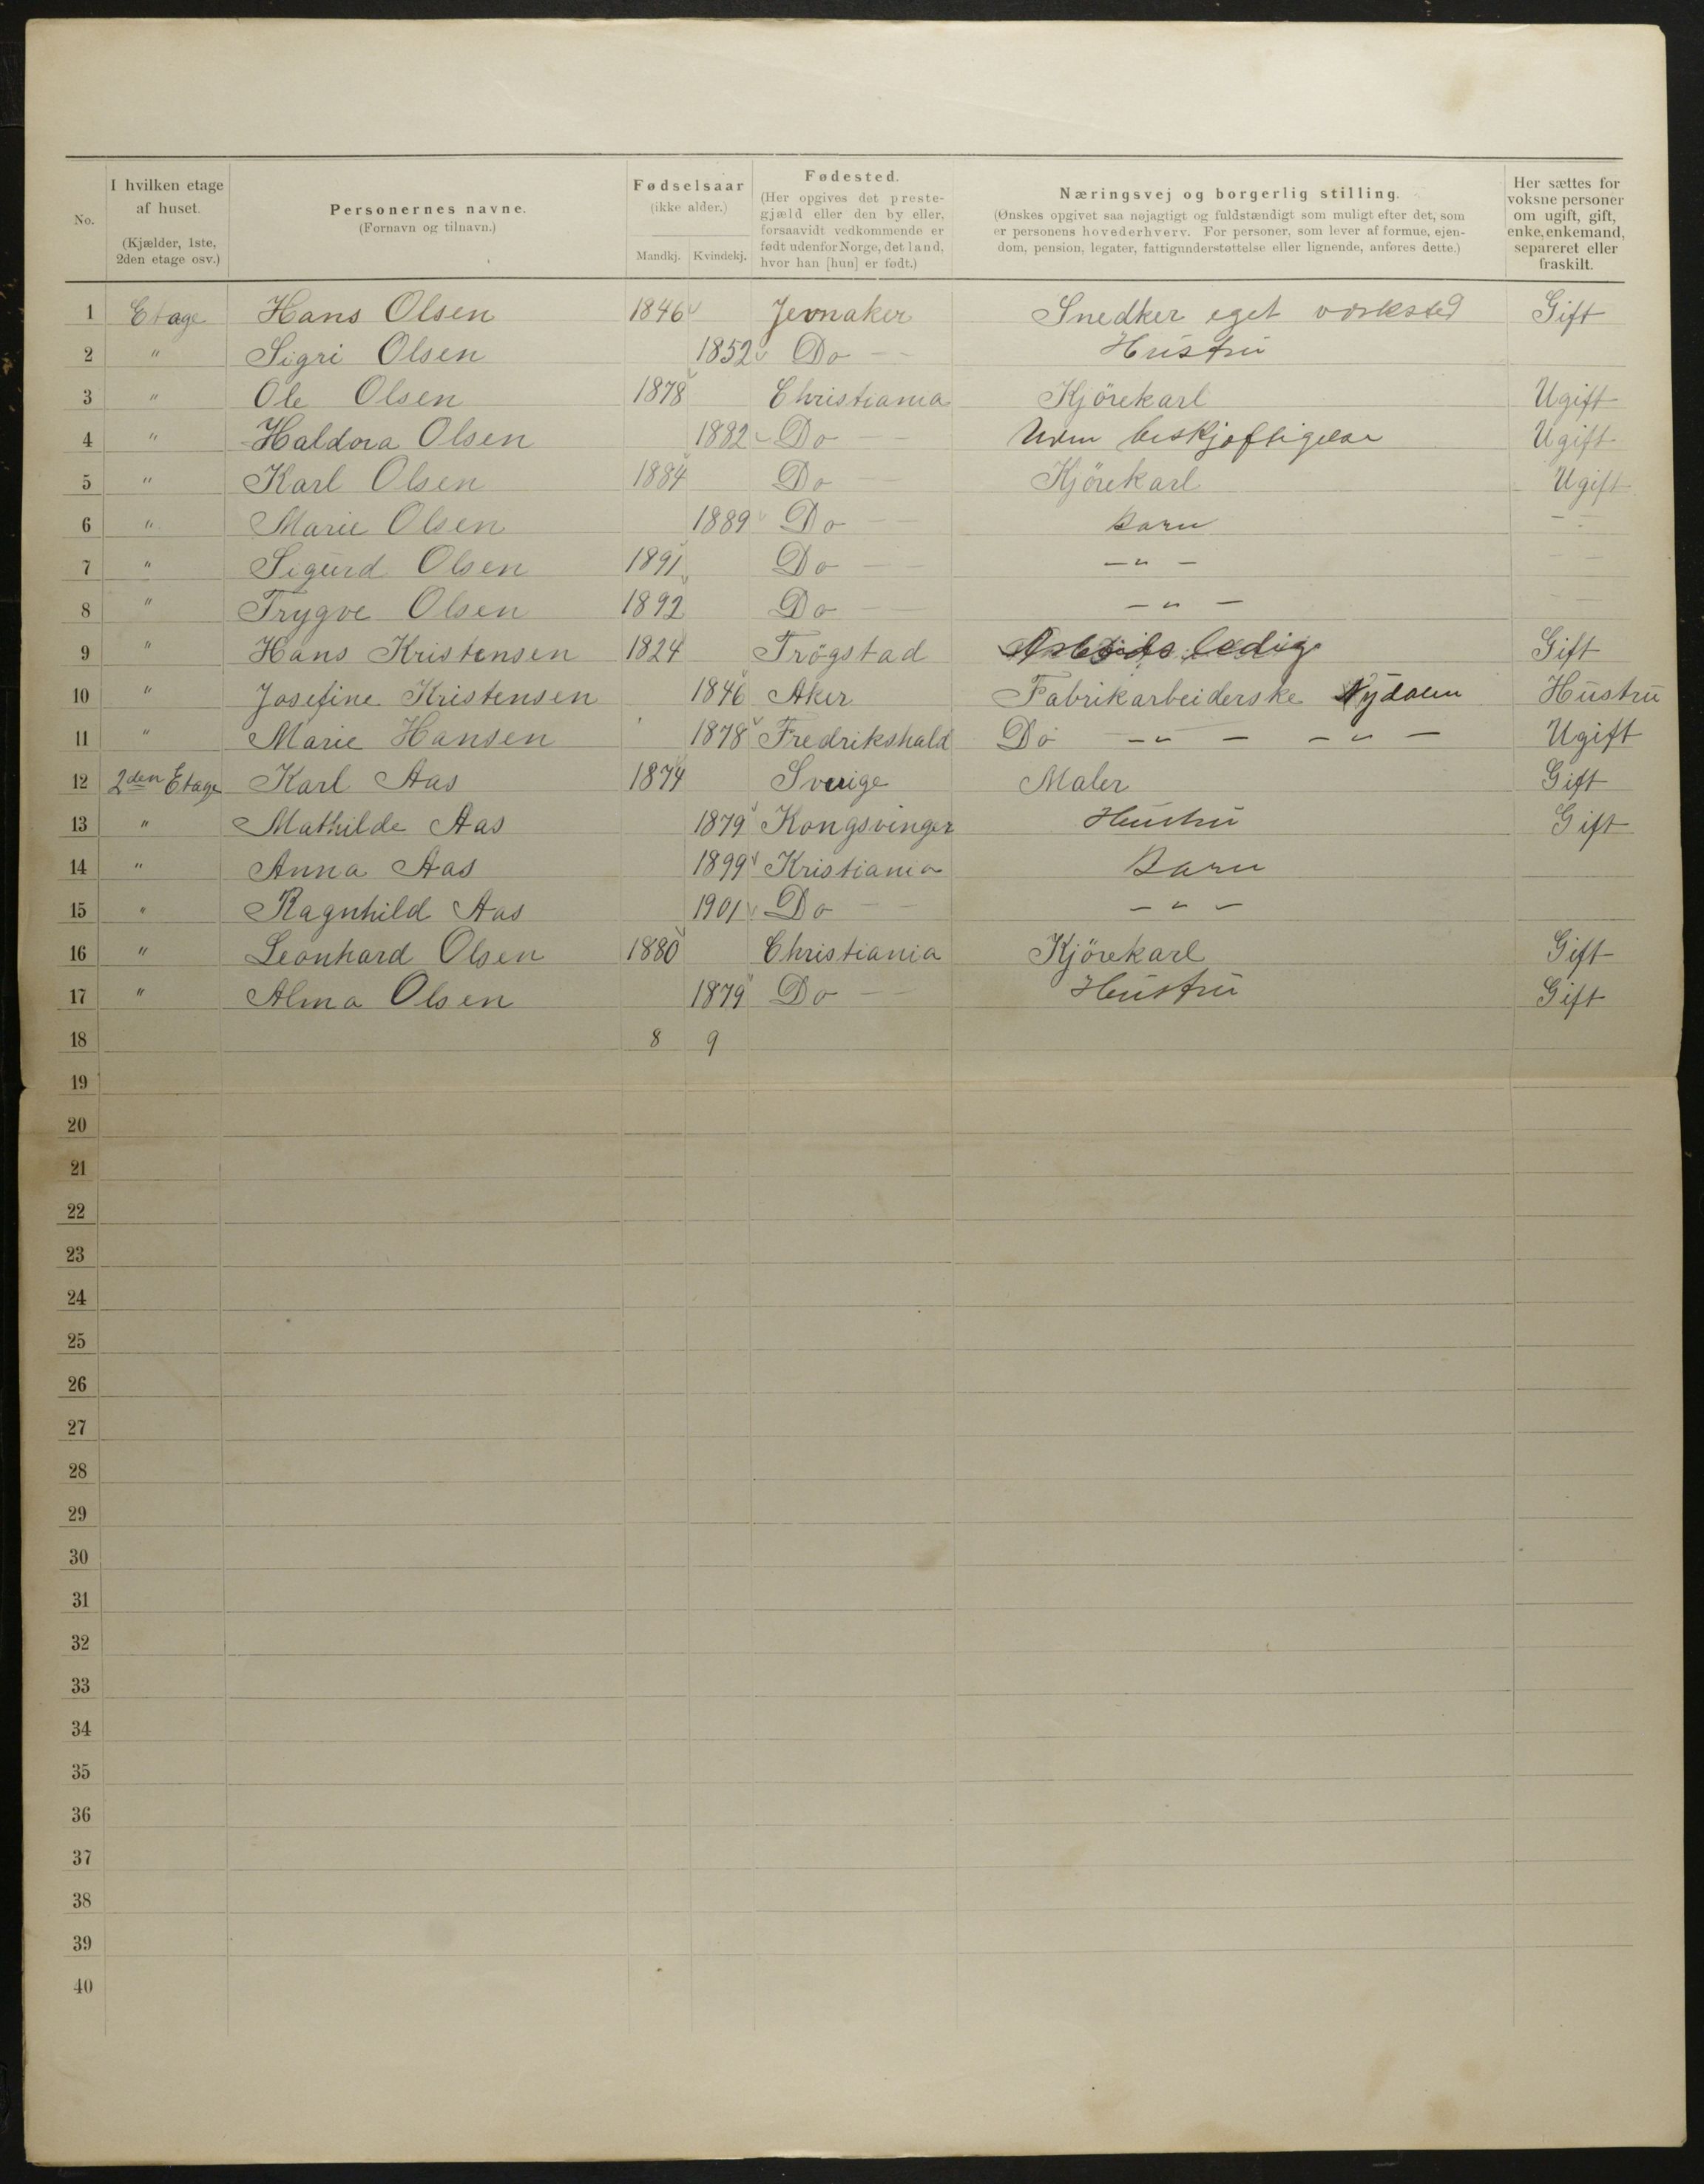 No.
I hvilken etage af huset. (Kjælder, 1ste, 2den etage osv.)
Personernes navne. (Fornavn og tilnavn.)
Fødselsaar (ikke alder.) Mandkj. Kvindekj.
Fødested. (Her opgives det prestegjæld eller den by eller, forsaavidt vedkommende er født udenfor Norge, det land, hvor han [hun] er født.)
Næringsvej og borgerlig stilling. (Ønskes opgivet saa nøjagtigt og fuldstændigt som muligt efter det, som er personens hovederhverv. For personer, som lever af formue, ejendom, pension, legater, fattigunderstøttelse eller lignende, anføres dette.)
Her sættes for voksne personer om ugift, gift, enke, enkemand, separeret eller fraskilt.
1 Etage Hans Olsen 1846 Jevnaker Snedker eget verksted Gift
2 " Sigri Olsen 1852 Do — — Hustru
3 " Ole Olsen 1878 Christiania Kjörekarl Ugift
4 " Haldora Olsen 1882 Do — — Uden beskjæftigelse Ugift
5 " Karl Olsen 1884 Do — — Kjörekarl Ugift
6 " Marie Olsen 1889 Do — — Barn — —
7 " Sigurd Olsen 1891 Do — — — " — — —
8 " Trygve Olsen 1892 Do — — — " — — —
9 " Hans Kristensen 1824 Trögstad Arbeids ledig Gift
10 " Josefine Kristensen 1846 Aker Fabrikarbeiderske Nydalen Hustru
11 " Marie Hansen 1878 Fredrikshald Do — " — — " — Ugift
12 2den Etage Karl Aas 1874 Sverige Maler Gift
13 " Mathilde Aas 1879 Kongsvinger Hustru Gift
14 " Anna Aas 1899 Kristiania Barn
15 " Ragnhild Aas 1901 Do — — — " —
16 " Leonhard Olsen 1880 Christiania Kjörekarl Gift
17 " Alma Olsen 1879 Do — — Hustru Gift
18 8 9
19
20
21
22
23
24
25
26
27
28
29
30
31
32
33
34
35
36
37
38
39
40